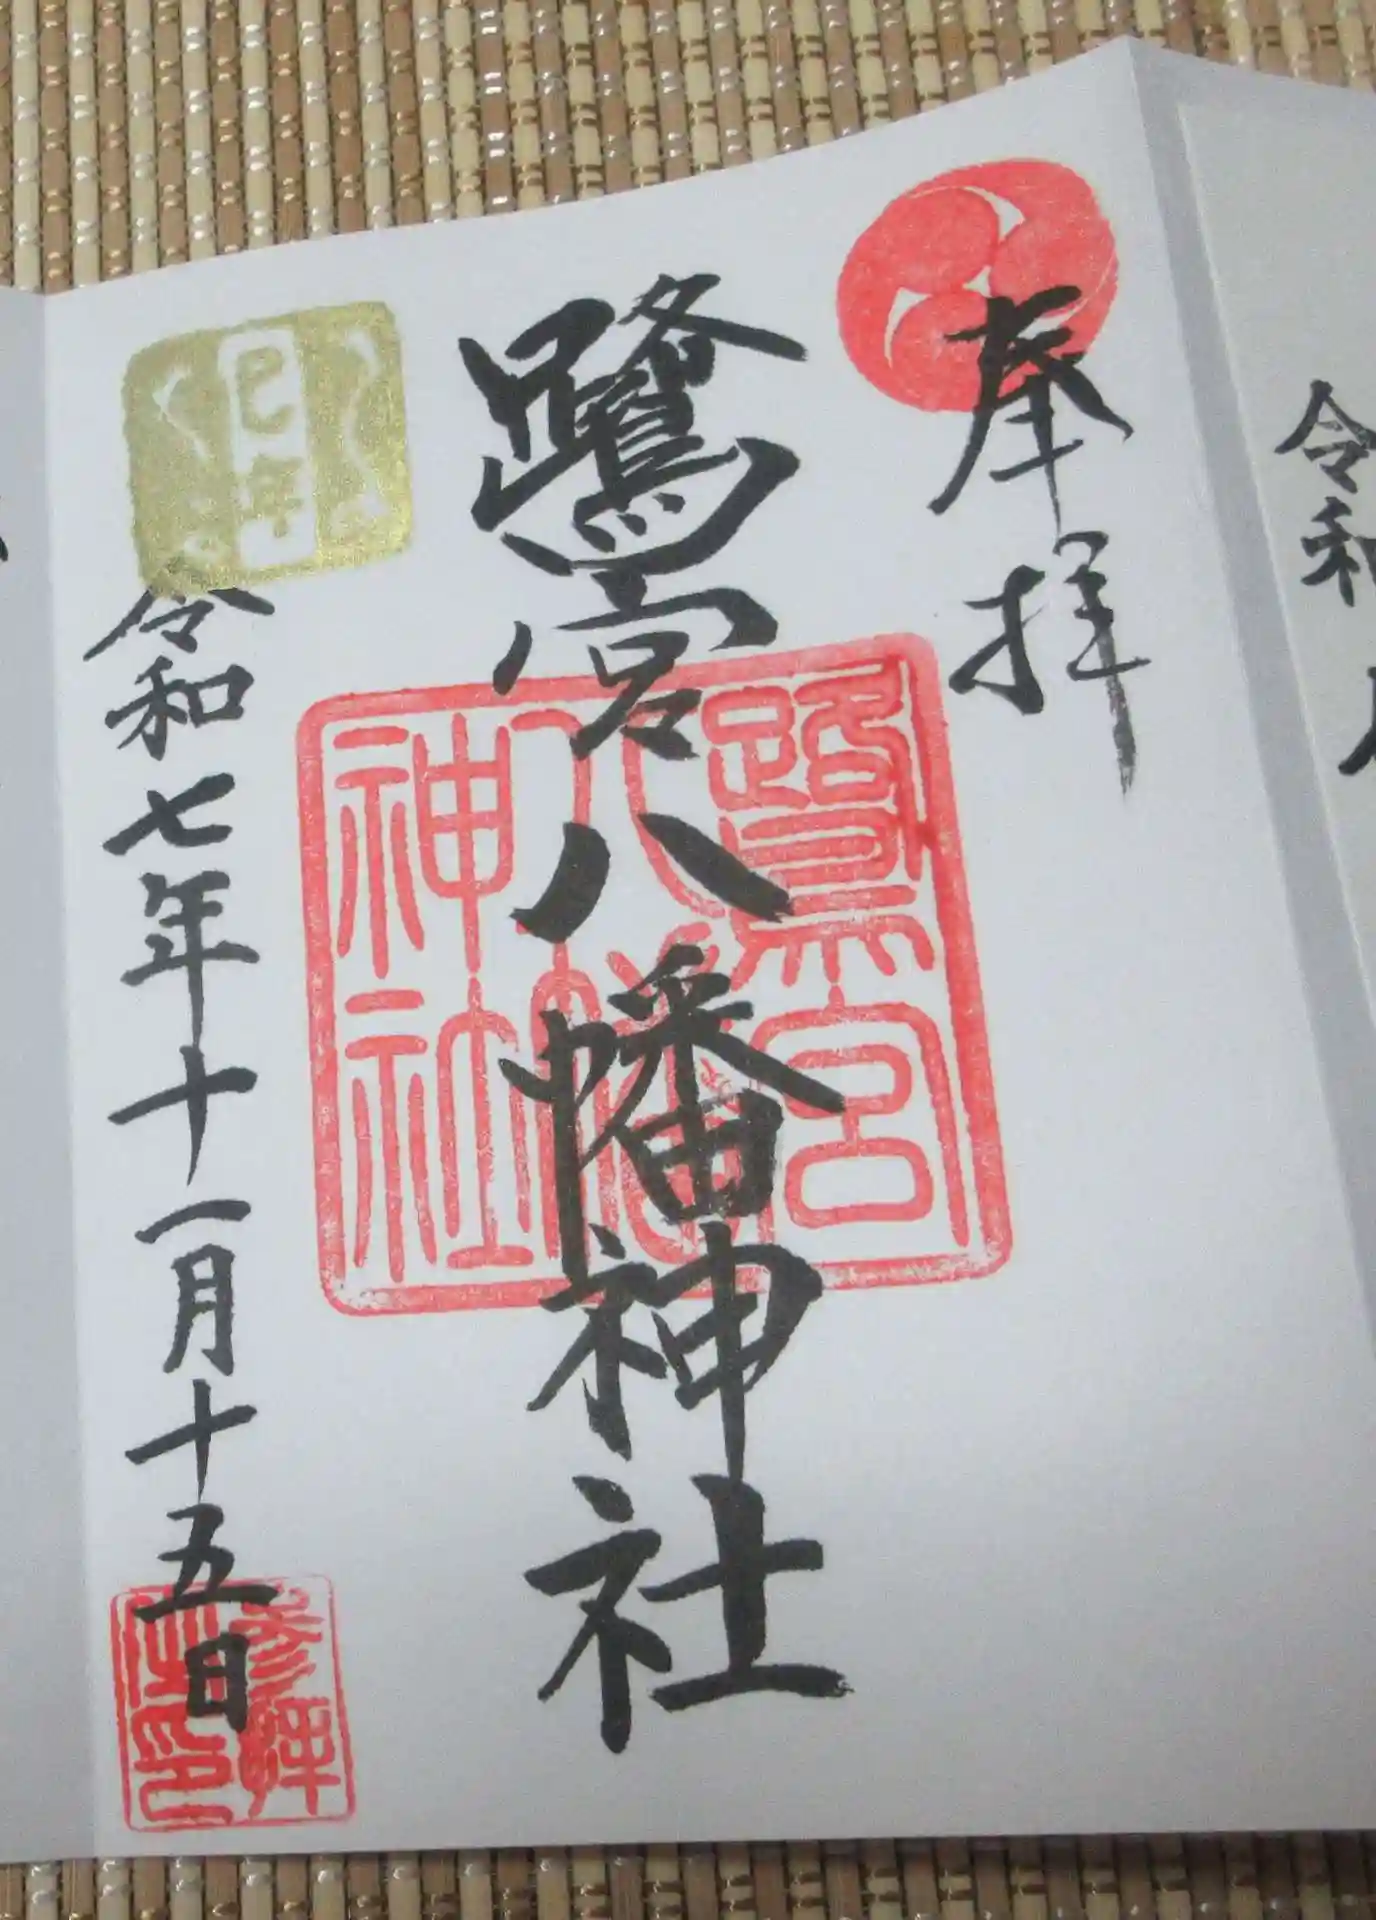 令和
奉拝
鷺宮八幡神社
鷺宮
八幡
神社
巳年
令和七年十一月十五日
参拝
之印